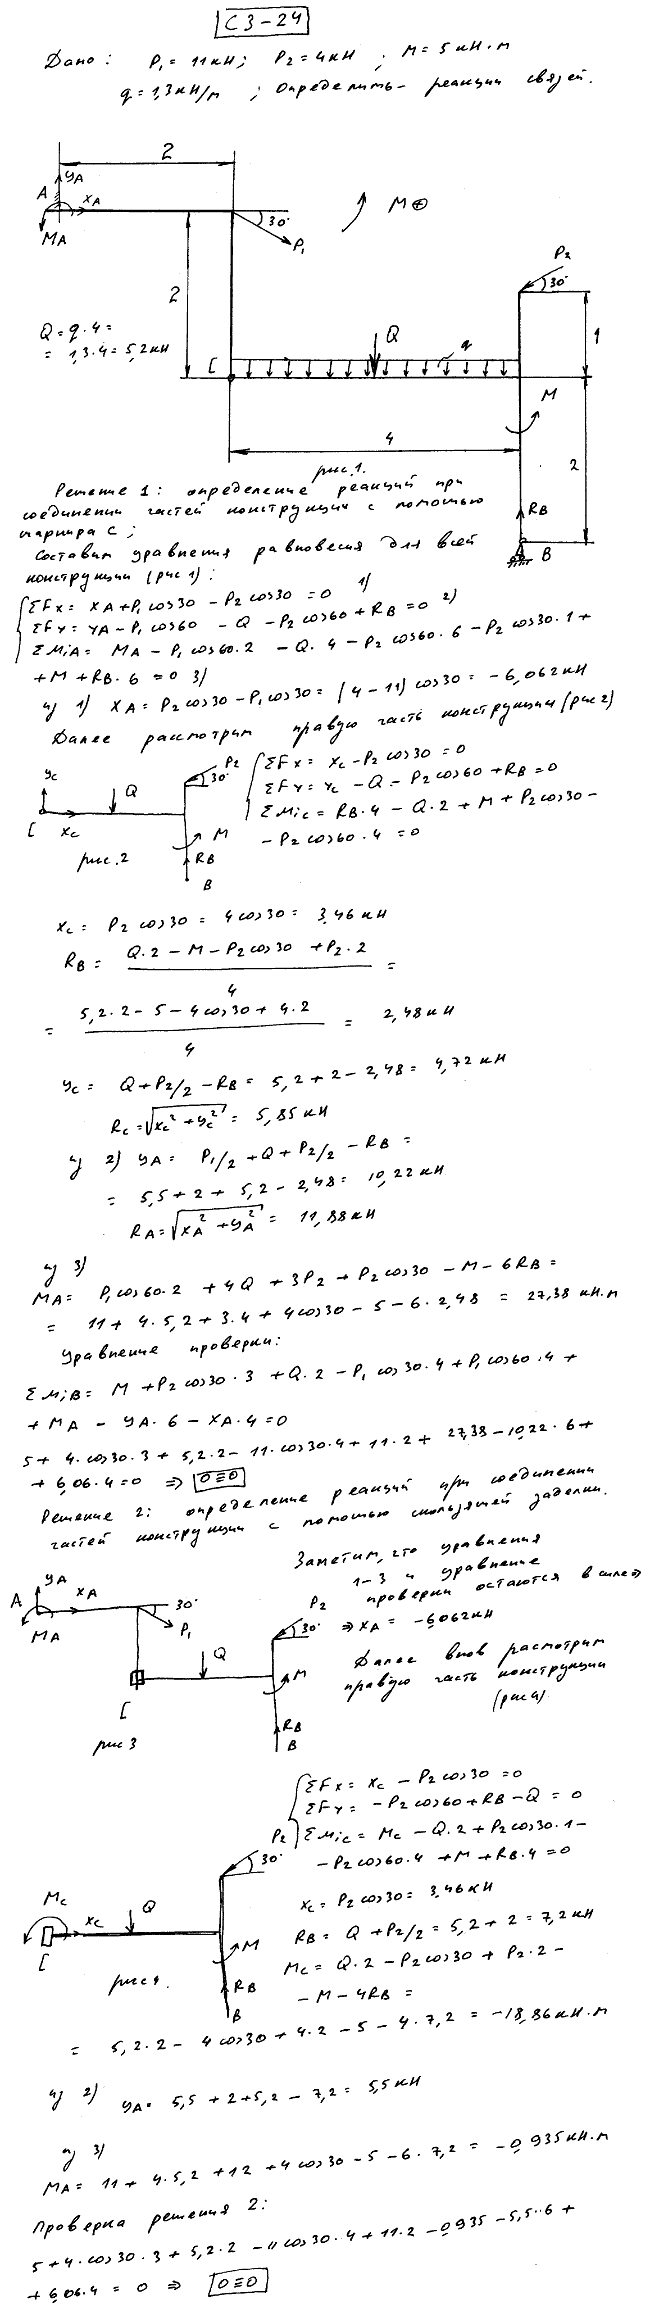 С3-24
Дано: P₁=11кН; P₂=4кН; M=5кН·м
q=1,3кН/м; Определить реакции связей.
2
yA
A
xA
MA
30°
P₁
M⊕
P₂
30°
2
Q=q·4=
=1,3·4=5,2кН
Q
q
C
1
M
4
2
рис.1.
RB
B
Решение 1: определение реакций при
соединении частей конструкции с помотью
шарнира С;
Составим уравнения равновесия для всей
конструкции (рис 1):
ΣFx= XA+P₁cos30-P₂cos30=0 1)
ΣFy= YA-P₁cos60-Q-P₂cos60+RB=0 2)
ΣMiA= MA-P₁cos60·2-Q·4-P₂cos60·6-P₂cos30·1+
+M+RB·6=0 3)
из 1) XA=P₂cos30-P₁cos30=(4-11)cos30=-6,062кН
Далее рассмотрим правую часть конструкции (рис 2)
P₂
30°
yC
Q
C
xC
M
RB
B
рис.2
ΣFx= xC-P₂cos30=0
ΣFy= yC-Q-P₂cos60+RB=0
ΣMiC= RB·4-Q·2+M+P₂cos30-
-P₂cos60·4=0
xC= P₂cos30= 4cos30= 3,46кН
RB= Q·2-M-P₂cos30+P₂·2 =
4
= 5,2·2-5-4cos30+4·2 = 2,48кН
4
yC= Q+P₂/2-RB= 5,2+2-2,48= 4,72кН
RC=√xC²+yC²= 5,85кН
из 2) YA= P₁/2+Q+P₂/2-RB=
= 5,5+2+5,2-2,48= 10,22кН
RA=√XA²+YA²= 11,88кН
из 3)
MA= P₁cos60·2+4Q+3P₂+P₂cos30-M-6RB=
= 11+4·5,2+3·4+4cos30-5-6·2,48= 27,38кН·м
Уравнение проверки:
ΣMiB= M+P₂cos30·3+Q·2-P₁cos30·4+P₁cos60·4+
+MA-YA·6-XA·4=0
5+4·cos30·3+5,2·2-11·cos30·4+11·2+27,38-10,22·6+
+6,06·4=0 ⇒ 0≡0
Решение 2: определение реакций при соединении
частей конструкции с помотью скользящей заделки.
Заметим, что уравнения
1-3 и уравнение
проверки остаются в силе⇒
⇒ XA= -6,062кН
Далее вновь расмотрим
правую часть конструкции
(рис 4).
yA
A
xA
30°
MA
P₁
P₂
30°
Q
M
C
RB
B
рис 3
ΣFx= xC-P₂cos30=0
ΣFy= -P₂cos60+RB-Q=0
ΣMiC= MC-Q·2+P₂cos30·1-
-P₂cos60·4+M+RB·4=0
P₂
30°
MC
xC
Q
C
M
RB
B
рис 4.
xC= P₂cos30= 3,46кН
RB= Q+P₂/2= 5,2+2= 7,2кН
MC= Q·2-P₂cos30+P₂·2-
-M-4RB=
= 5,2·2-4cos30+4·2-5-4·7,2= -18,86кН·м
из 2) YA= 5,5+2+5,2-7,2= 5,5кН
из 3)
MA= 11+4·5,2+12+4cos30-5-6·7,2= -0,935кН·м
Проверка решения 2:
5+4·cos30·3+5,2·2-11cos30·4+11·2-0,935-5,5·6+
+6,06·4=0 ⇒ 0≡0